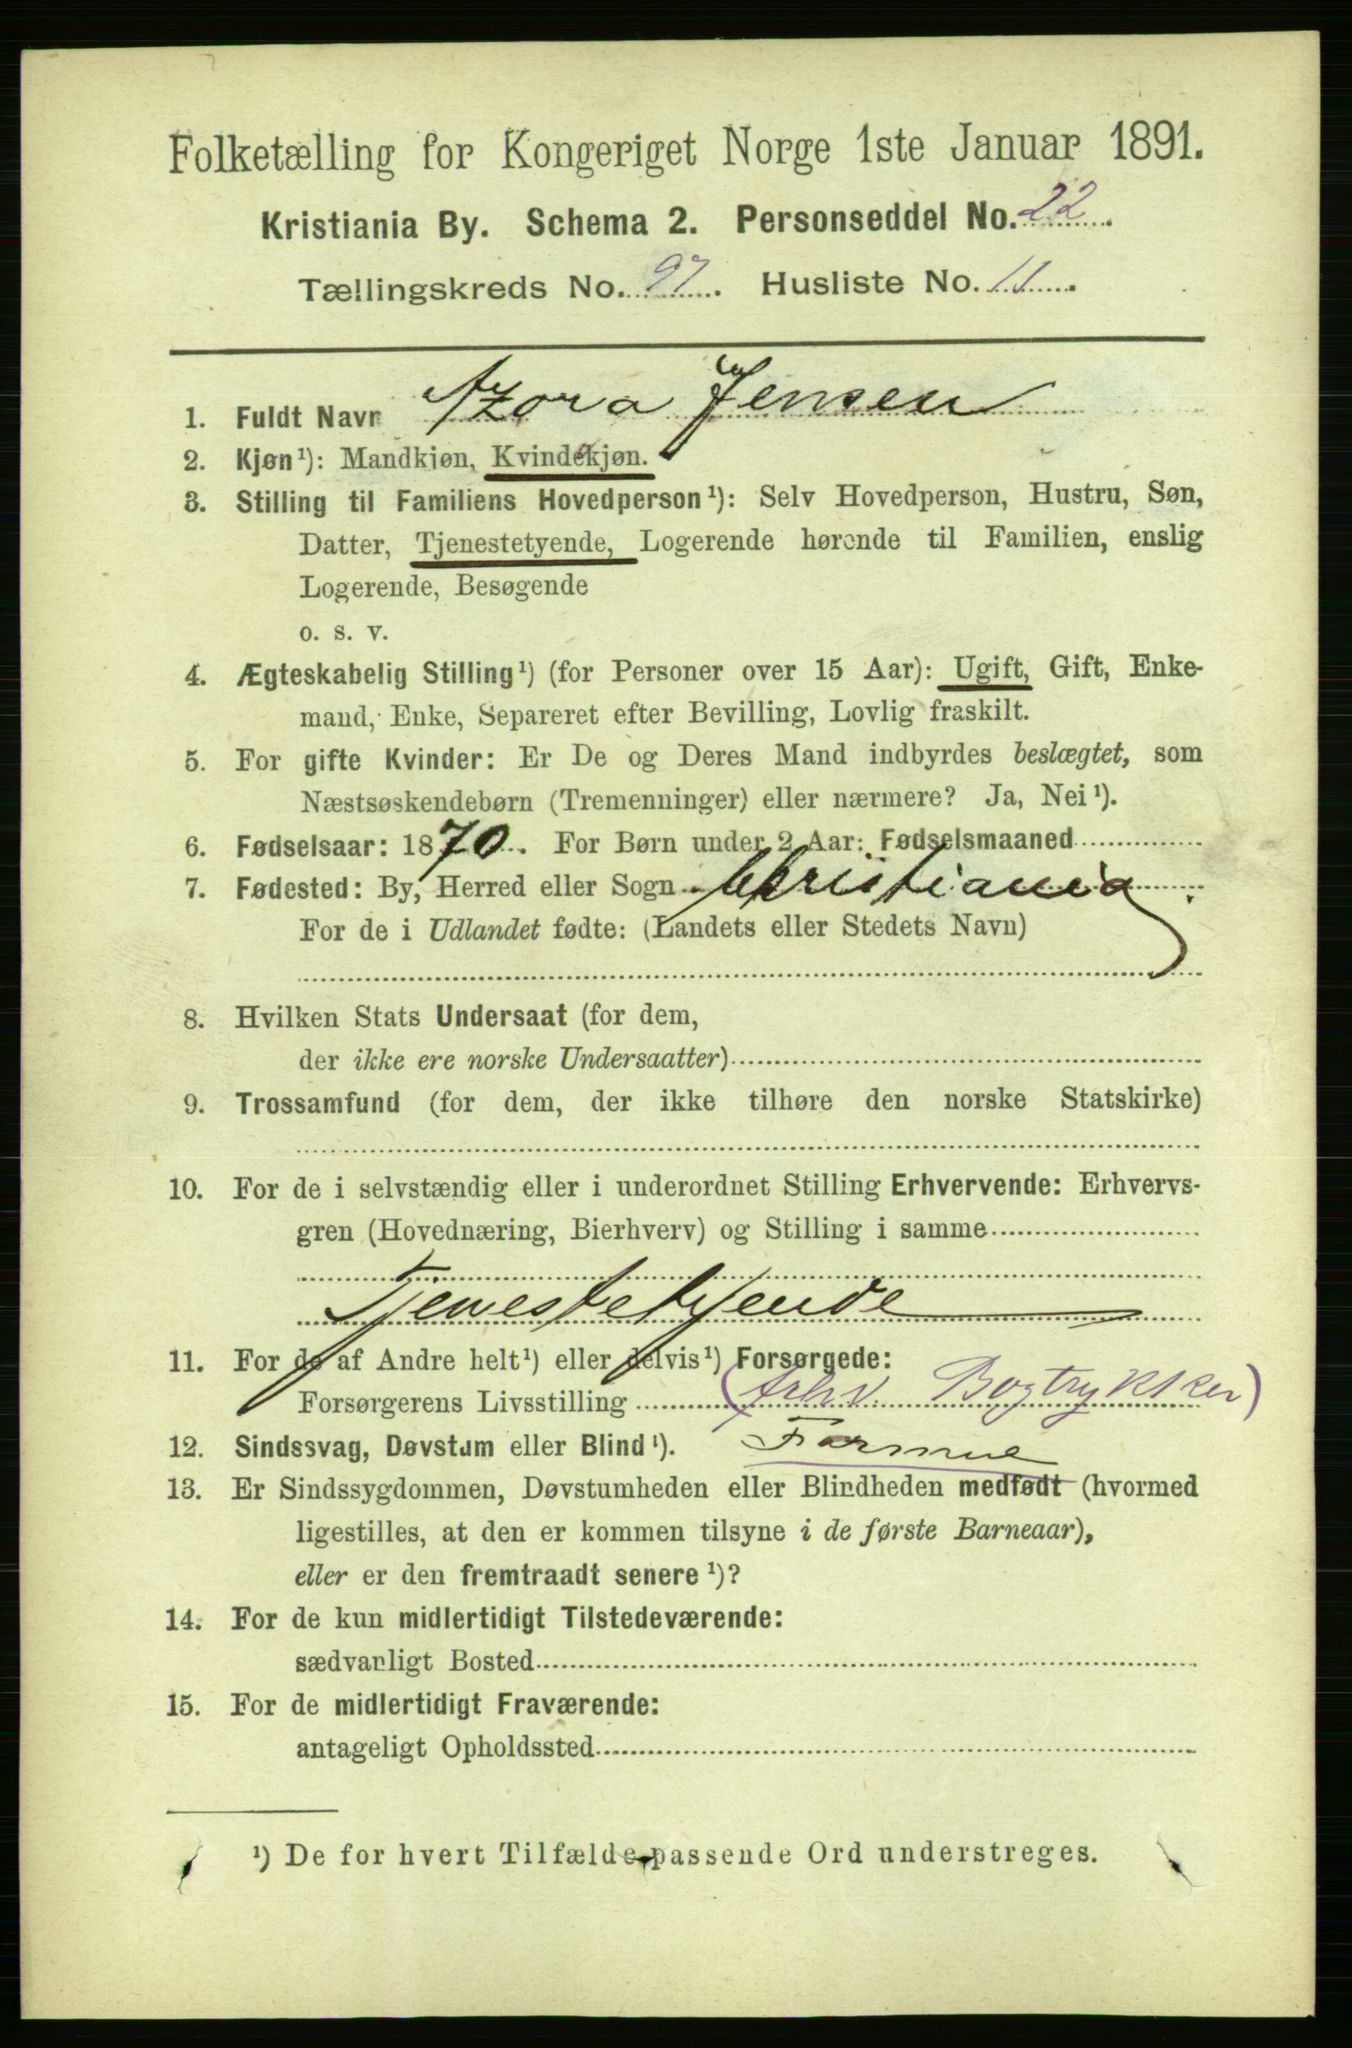 Folketælling for Kongeriget Norge 1ste Januar 1891.
Kristiania By. Schema 2. Personseddel No. 22.
Tællingskreds No. 97. Husliste No. 11.
1. Fuldt Navn Azora Jensen
2. Kjøn¹): Mandkjøn, Kvindekjøn.
3. Stilling til Familiens Hovedperson¹): Selv Hovedperson, Hustru, Søn,
Datter, Tjenestetyende, Logerende hørende til Familien, enslig
Logerende, Besøgende
o. s. v.
4. Ægteskabelig Stilling¹) (for Personer over 15 Aar): Ugift, Gift, Enke-
mand, Enke, Separeret efter Bevilling, Lovlig fraskilt.
5. For gifte Kvinder: Er De og Deres Mand indbyrdes beslægtet, som
Næstsøskendebørn (Tremenninger) eller nærmere? Ja, Nei¹).
6. Fødselsaar: 1870. For Børn under 2 Aar: Fødselsmaaned
7. Fødested: By, Herred eller Sogn Christiania.
For de i Udlandet fødte: (Landets eller Stedets Navn)
8. Hvilken Stats Undersaat (for dem,
der ikke ere norske Undersaatter)
9. Trossamfund (for dem, der ikke tilhøre den norske Statskirke)
10. For de i selvstændig eller i underordnet Stilling Erhvervende: Erhvervs-
gren (Hovednæring, Bierhverv) og Stilling i samme
Tjenestetyende
11. For de af Andre helt¹) eller delvis¹) Forsørgede:
Forsørgerens Livsstilling (Arbv. Bogtrykker)
12. Sindssvag, Døvstum eller Blind¹). Formue
13. Er Sindssygdommen, Døvstumheden eller Blindheden medfødt (hvormed
ligestilles, at den er kommen tilsyne i de første Barneaar),
eller er den fremtraadt senere¹)?
14. For de kun midlertidigt Tilstedeværende:
sædvanligt Bosted
15. For de midlertidigt Fraværende:
antageligt Opholdssted
¹) De for hvert Tilfælde passende Ord understreges.